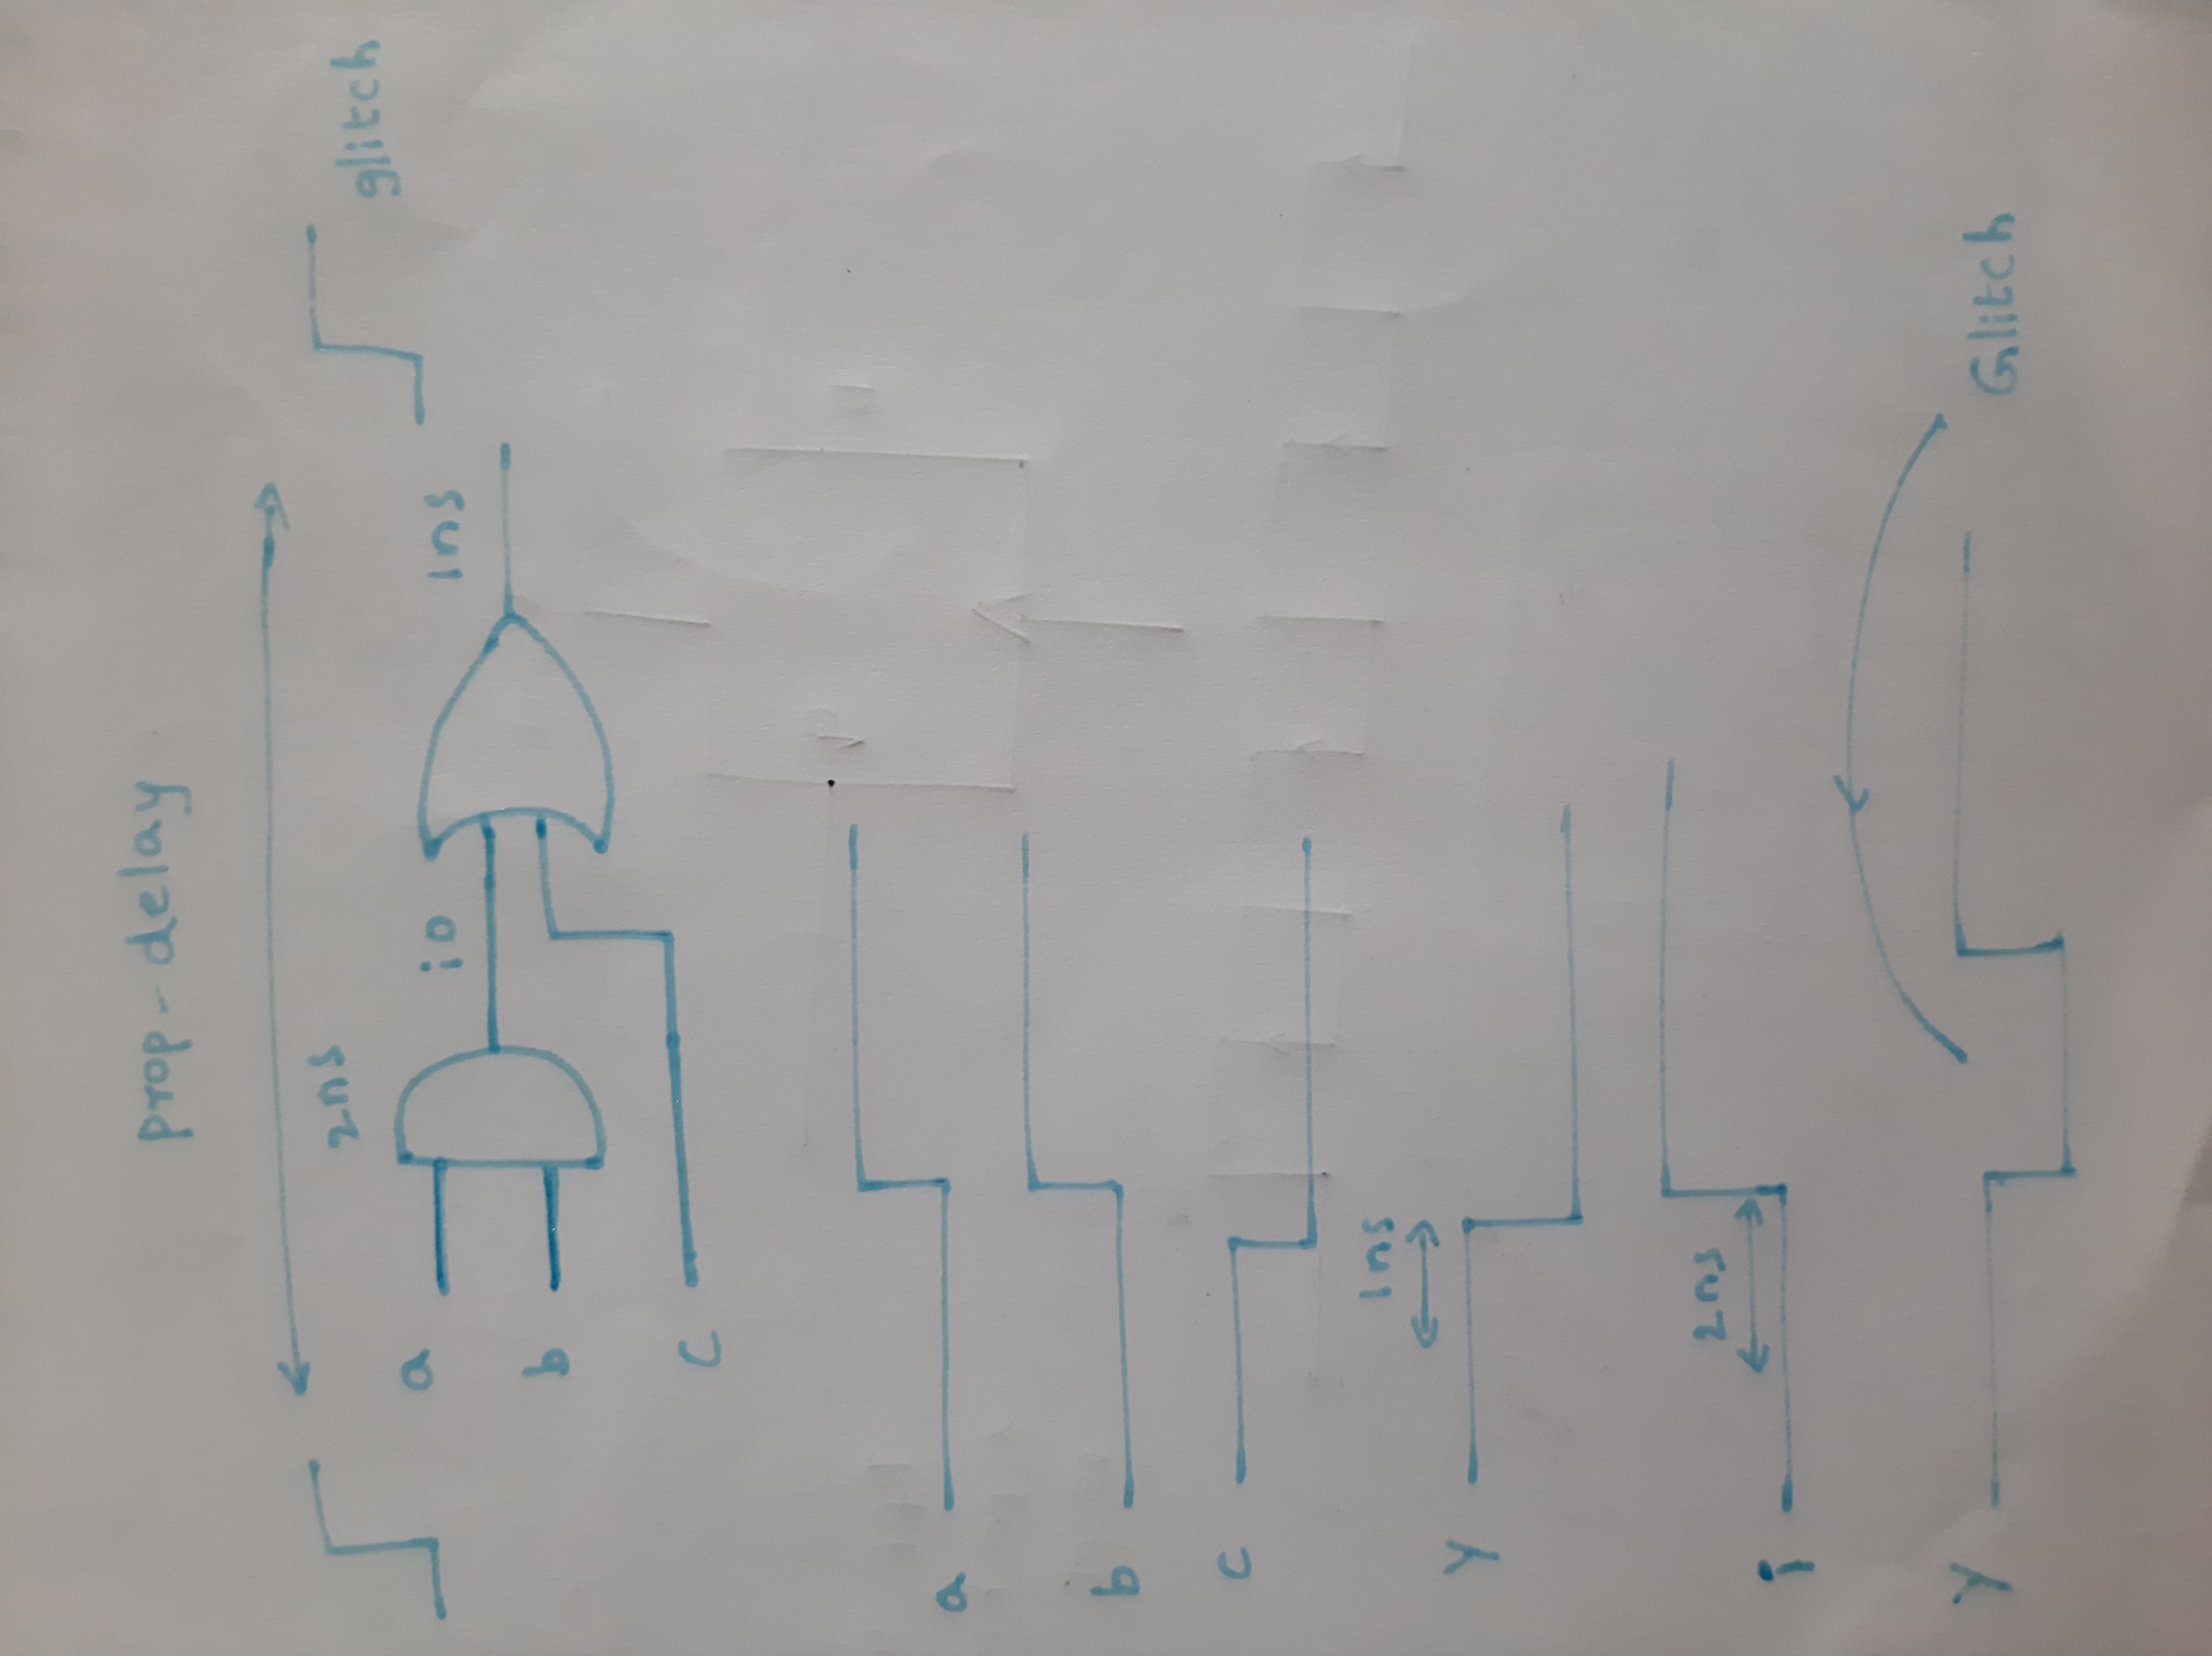 prop-delay
2ns
glitch
a
i0
1ns
b
c
a
b
c
1ns
y
2ns
i
y
Glitch